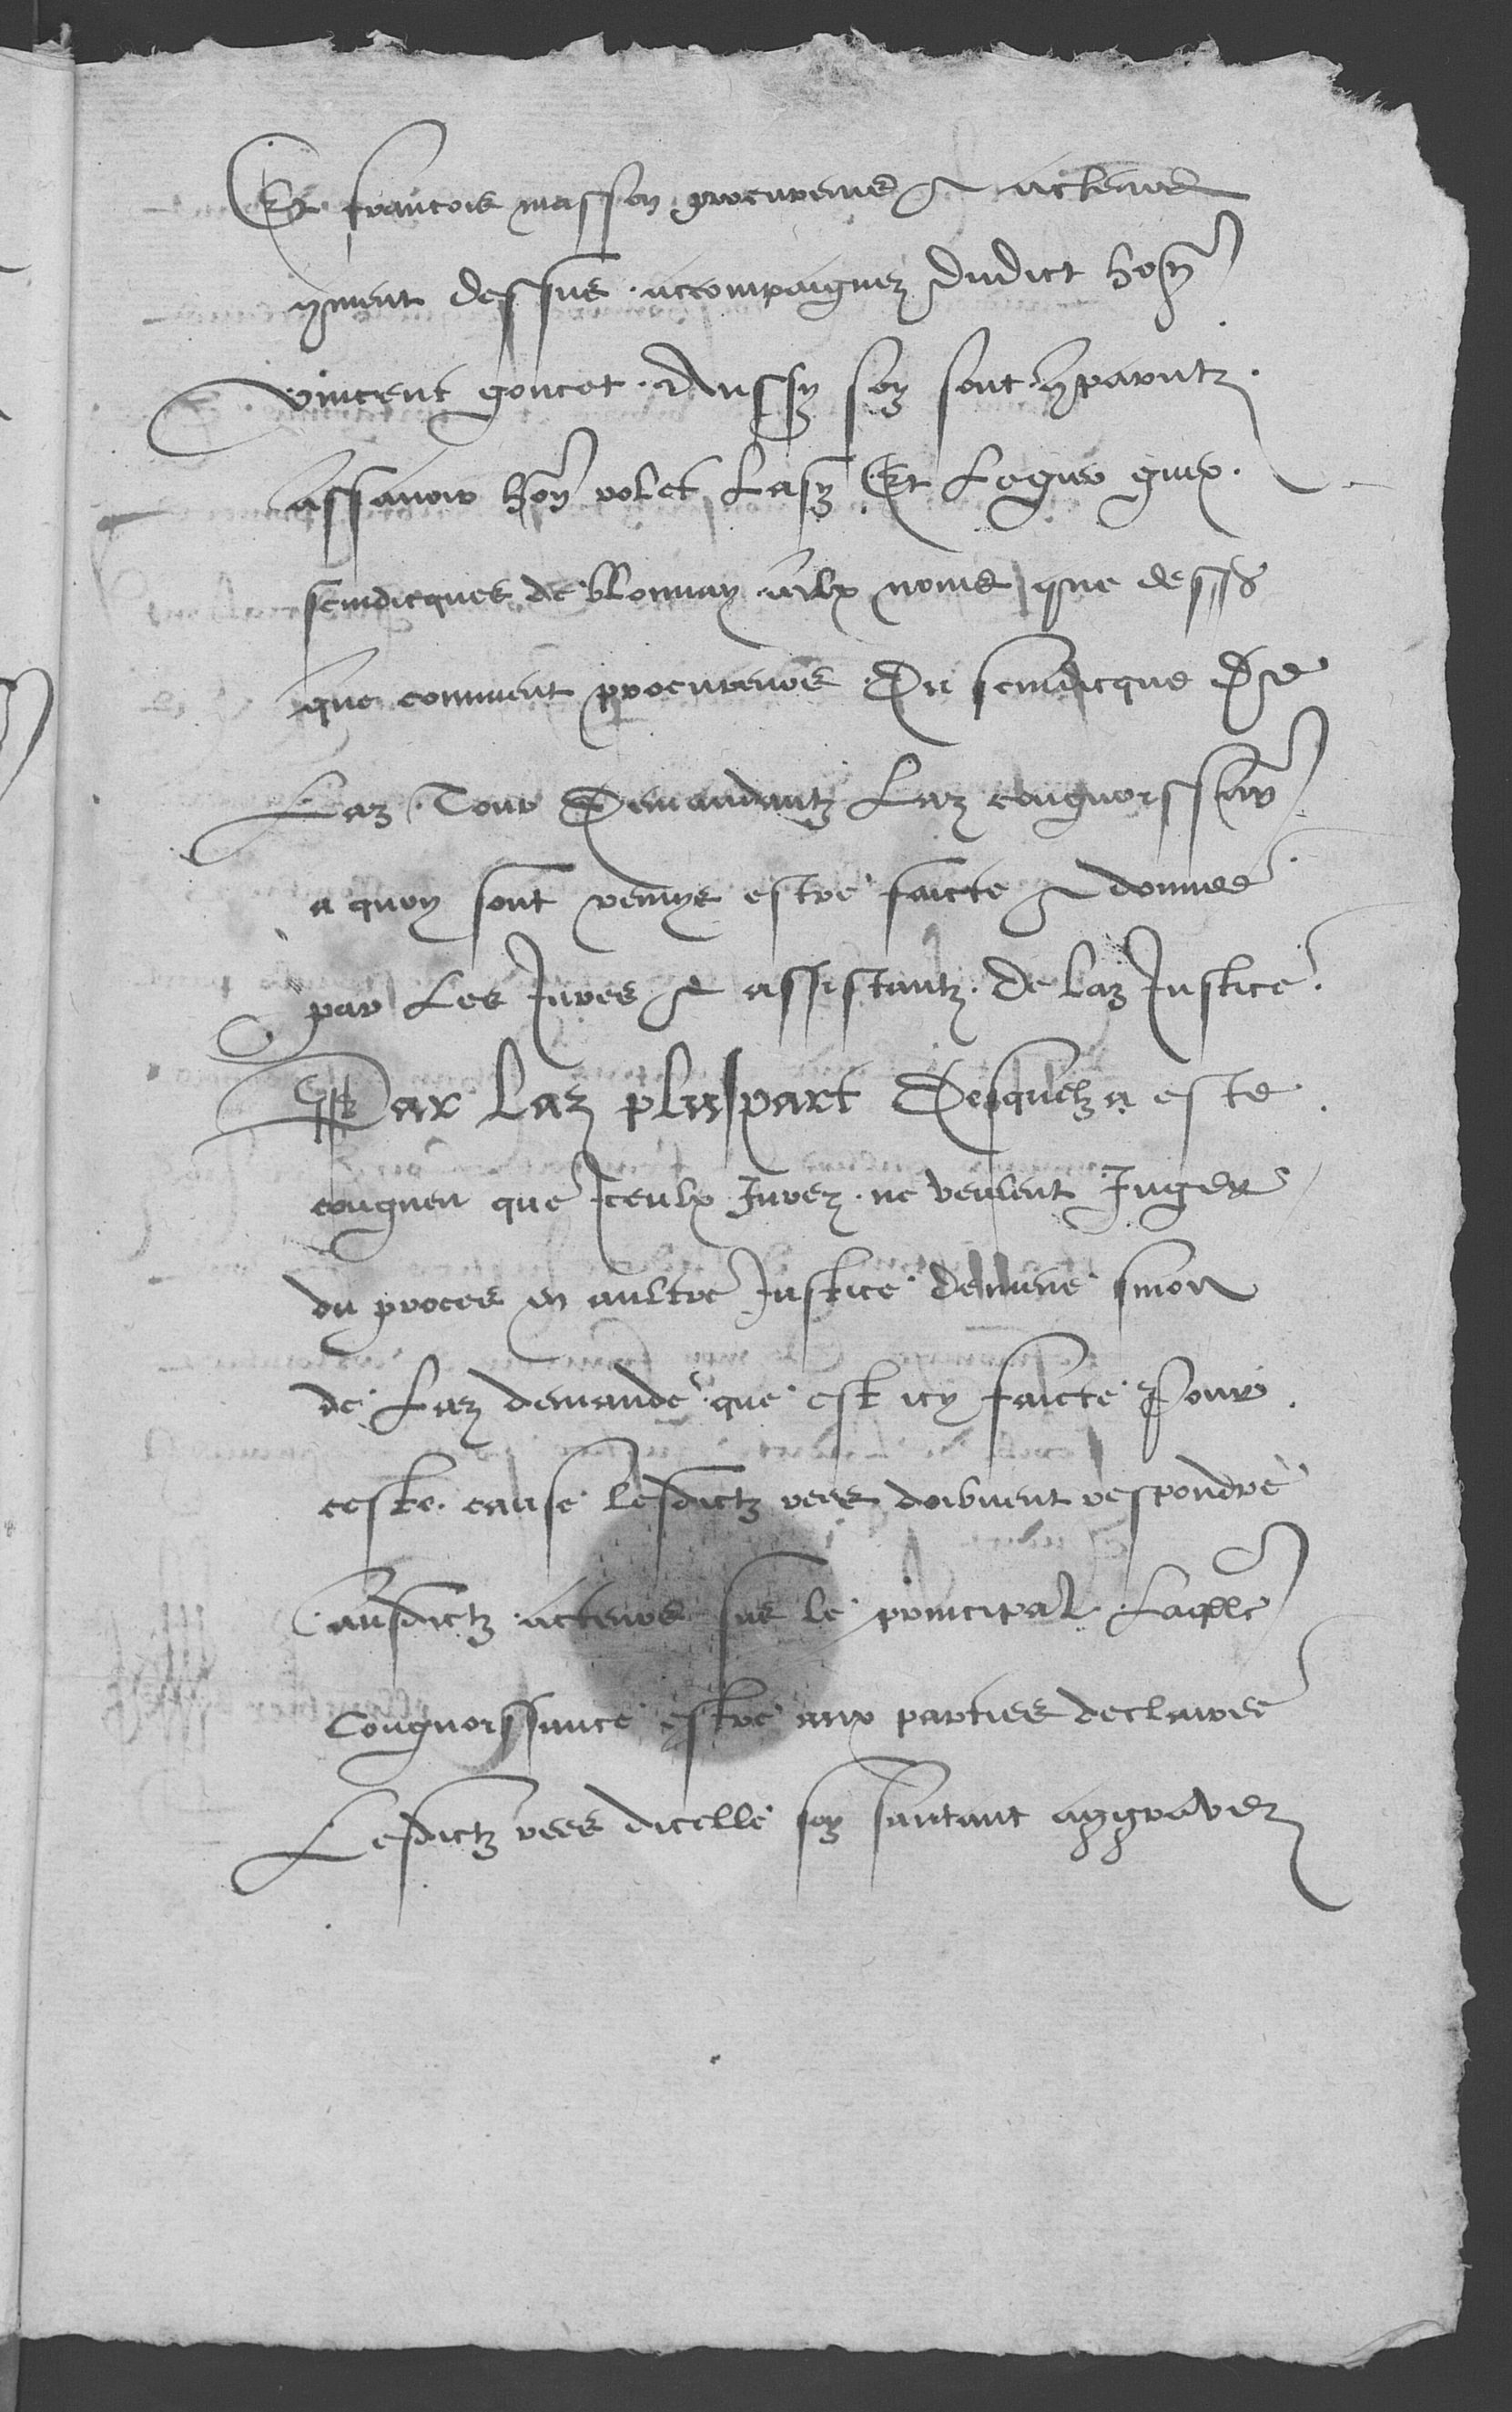 Et francois masson procureurs & acteurs
q͂ment dessus . accompaignez dudict hon͂
vincent goncet . Aussy soy sont 9parutz .
assavoir hon͂ volet Et Legier guex .
scindicques de blonnay aulx noms que dess9
que comment procureurs Du scindicque de
Laz Tour Demandantz Laz congnoissan͂
a quoy sont remys estre faicte & donnee
par Les Jures & assistantz . de laz Justice .
Par laz pluspart Desquelz a este .
congneu que Jceulx Jurez . ne veulent Juger
du proces en aultre Justice demene sinon
de Laz demande que est icy faicte Pour .
ceste . cause lesdictz rees doibvent respondre
ausdictz acteurs sus le principal . Laqlle
Congnoissance estre aux parties declairee
Lesdictz rees dicelle soy santant aggravez